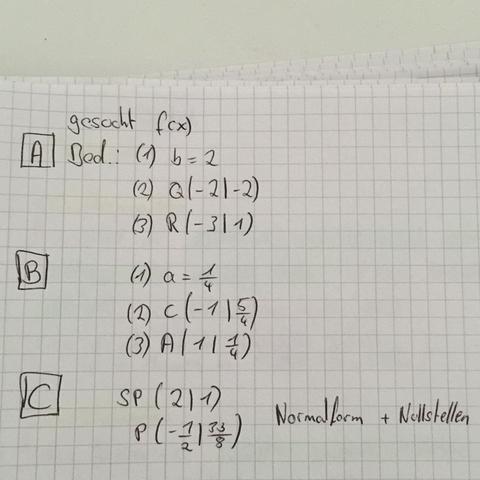 gesucht f(x)
A Bed.: (1) b = 2
(2) Q(-2|-2)
(3) R(-3|1)
B (1) a = 1/4
(2) C(-1|5/4)
(3) A(1|1/4)
C SP (2|1)
P(-1/2|33/8) Normalform + Nullstellen